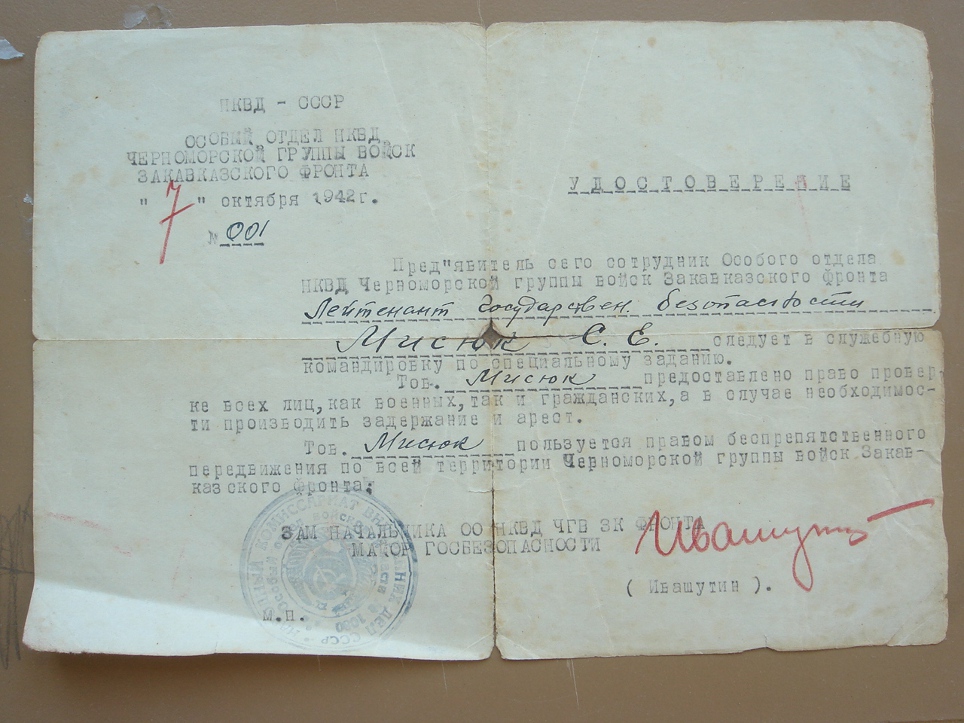 НКВД - СССР
ОСОБЫЙ ОТДЕЛ НКВД
ЧЕРНОМОРСКОЙ ГРУППЫ ВОЙСК
ЗАКАВКАЗСКОГО ФРОНТА
" 7 " октября 1942г.
№ 001
УДОСТОВЕРЕНИЕ
Пред"явитель сего сотрудник Особого отдела
НКВД Черноморской группы войск Закавказского фронта
Лейтенант государствен. безопастности
Мисюк С. Е. следует в служебную
командировку по специальному заданию.
Тов. Мисюк предоставлено право провер-
ке всех лиц, как военных, так и гражданских, а в случае необходимос-
ти производить задержание и арест.
Тов. Мисюк пользуется правом беспрепятственного
передвижения по всей территории Черноморской группы войск Закав-
казского фронта.
ЗАМ НАЧАЛЬНИКА ОО НКВД ЧГВ ЗК ФРОНТА
МАЙОР ГОСБЕЗОПАСНОСТИ
Ивашутин
( Ивашутин ).
М.П.